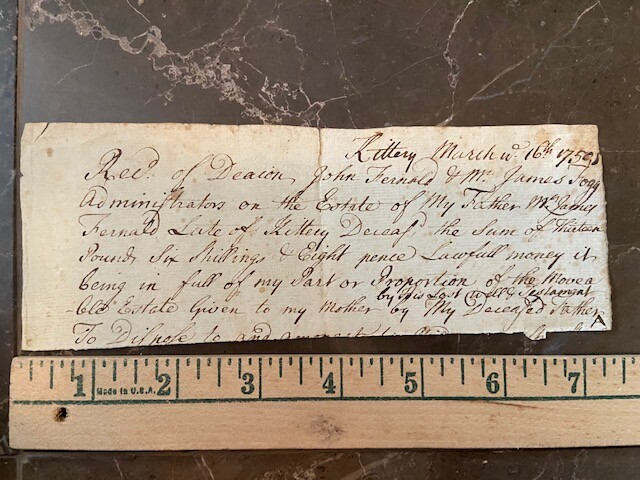 Kittery March ye. 16th 1759
Recd. of Deacon John Fernald & Mr. James Fogg
Administrators on the Estate of My Father Mr. James
Fernald Late of Kittery Deceasd the Sum of thirteen
Pounds Six Shillings & Eight pence Lawfull money it
being in full of my Part or Proportion of the Movea
by his Last will & Testament
-ble Estate Given to my Mother by My Deceased Father
To Dispose to and amongst
1 2 3 4 5 6 7
Made in U.S.A.